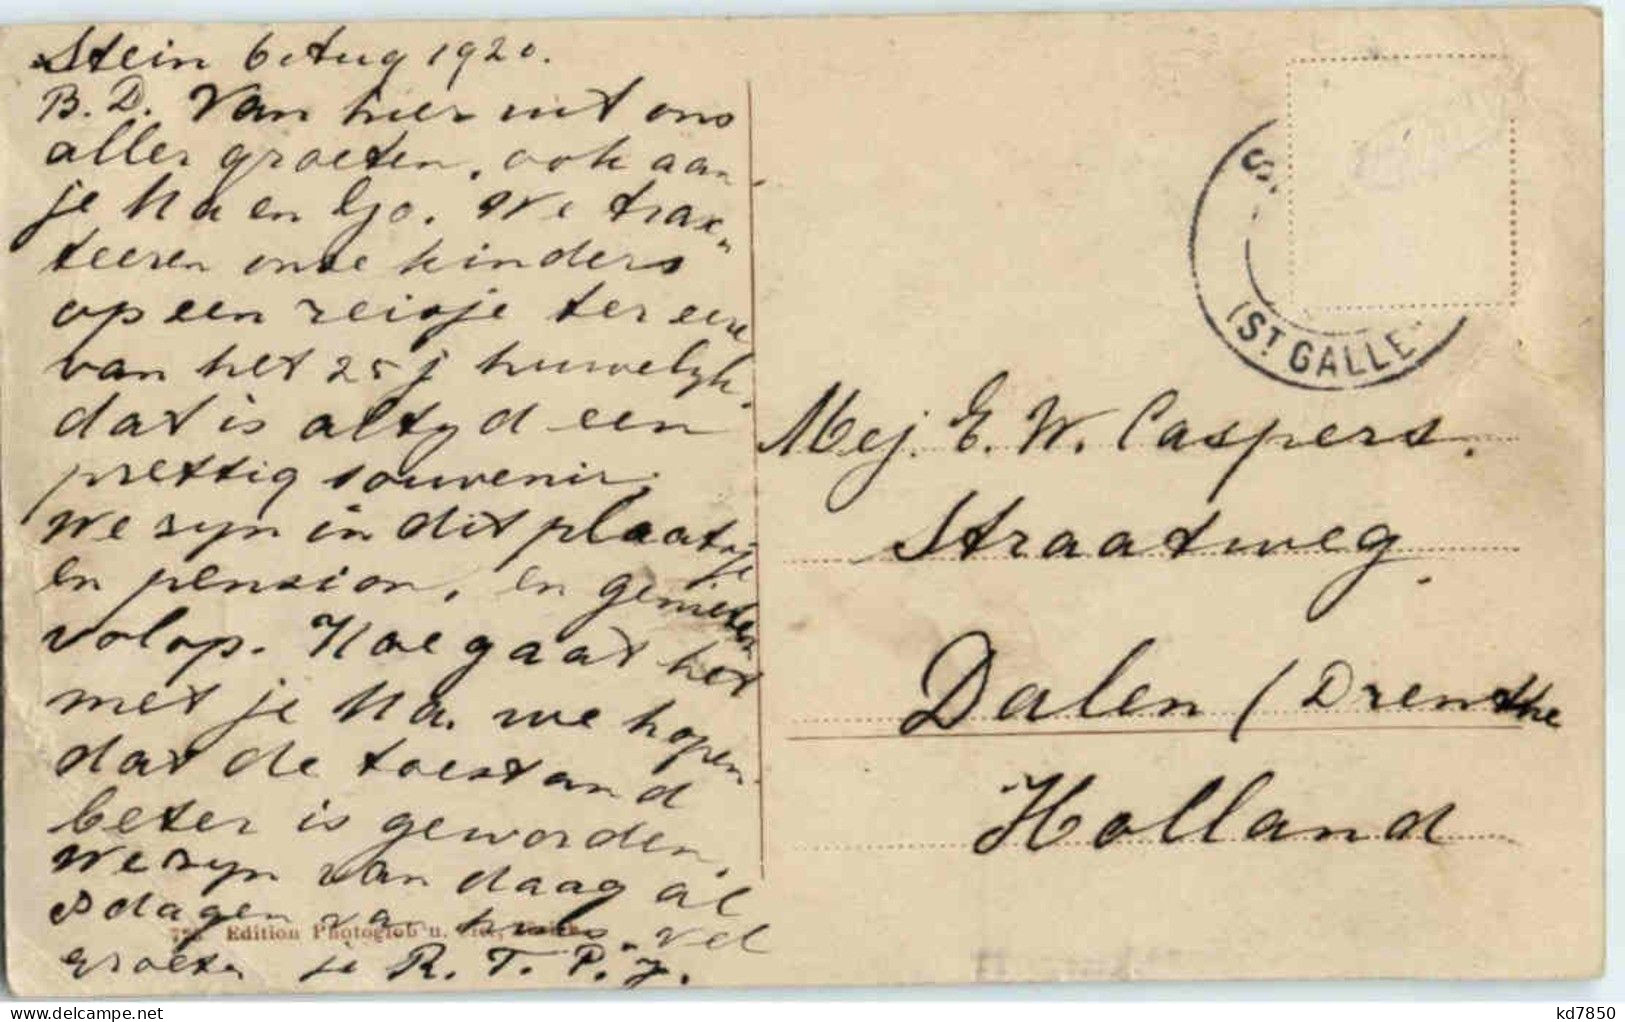 Stein 6 Aug 1920.
B.D. Van hier uit ons
aller groeten, ook aan
je Ma en Jo. We trac-
teeren onze kinders
op een reisje ter eere
van het 25 j huwelyk.
dat is altyd een
prettig souvenir.
We zyn in dit plaatsje
en pension, en genieten
volop. Hoe gaat het
met je Ma. we hopen
dat de toestand
beter is geworden.
We zyn vandaag al
dagen van huis. vel
groeten je R. T. P. J.
Edition Photoglob
(ST GALLE
Mej. E. W. Caspers.
Straatweg.
Dalen (Drenthe
Holland
kd7850